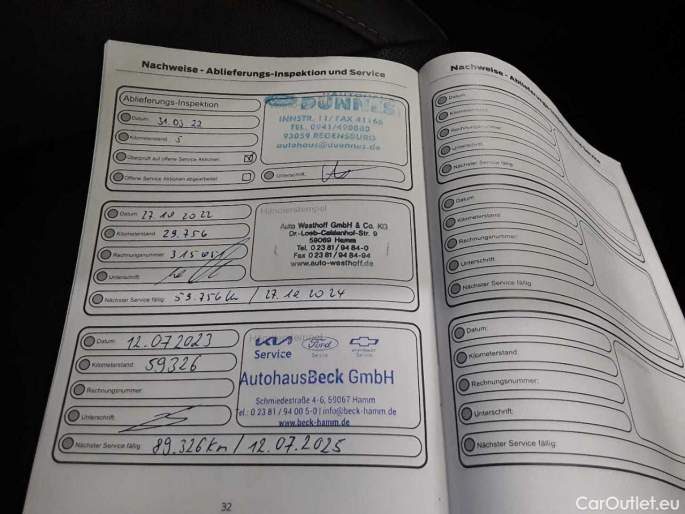 Nachweise - Ablieferungs-Inspektion und Service
Ablieferungs-Inspektion
Datum: 31.03.22
Kilometerstand: 5
Überprüft auf offene Service Aktionen:
Offene Service Aktionen abgearbeitet:
DÜNNES
INNSTR. 11/ FAX 41166
TEL. 0941/490060
93059 REGENSBURG
autohaus@duennes.de
Unterschrift:
Datum: 27 10 2022
Kilometerstand: 29.756
Rechnungsnummer:
Unterschrift:
Händlerstempel
Auto Westhoff GmbH & Co. KG
Dr.-Loeb-Caldenhof-Str. 9
59069 Hamm
Tel. 0 23 81 / 94 84-0
Fax 0 23 81 / 94 84-94
www.auto-westhoff.de
Nächster Service fällig: 59.756 km / 27.10 2024
Datum: 12.07.2023
Kilometerstand: 59326
Rechnungsnummer:
Unterschrift:
KIA Ford CHEVROLET
Service Service Service
AutohausBeck GmbH
Schmiedestraße 4-6, 59067 Hamm
Tel.: 0 23 81 / 94 00 5-0 | info@beck-hamm.de
www.beck-hamm.de
Nächster Service fällig: 89.326km / 12.07.2025
32
Nachweise - Ablieferungs-Inspektion und Service
Datum:
Kilometerstand:
Rechnungsnummer:
Unterschrift:
Nächster Service fällig:
Datum:
Kilometerstand:
Rechnungsnummer:
Unterschrift:
Nächster Service fällig:
Datum:
Kilometerstand:
Rechnungsnummer:
Unterschrift:
Nächster Service fällig:
CarOutlet.eu